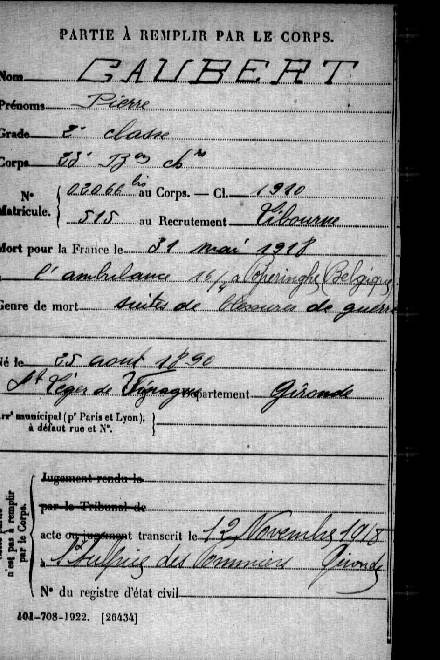 PARTIE À REMPLIR PAR LE CORPS.
Nom GAUBERT
Prénoms Pierre
Grade 2e classe
Corps 23e Bon chrs
No Matricule. { 02060 bis au Corps. — Cl. 1910
515 au Recrutement Libourne
Mort pour la France le 31 mai 1918
à l'ambulance 16/ à Poperinghe Belgique
Genre de mort suites de blessures de guerre
Né le 25 août 1890
St Léger de Vignague Département Gironde
Arrt municipal (pr Paris et Lyon), à défaut rue et No. }
Jugement rendu le
par le Tribunal de
acte ou jugement transcrit le 12 Novembre 1918
à St Sulpice des Pommiers Gironde
No du registre d'état civil
n'est pas à remplir par le Corps.
101-708-1922. [26434]